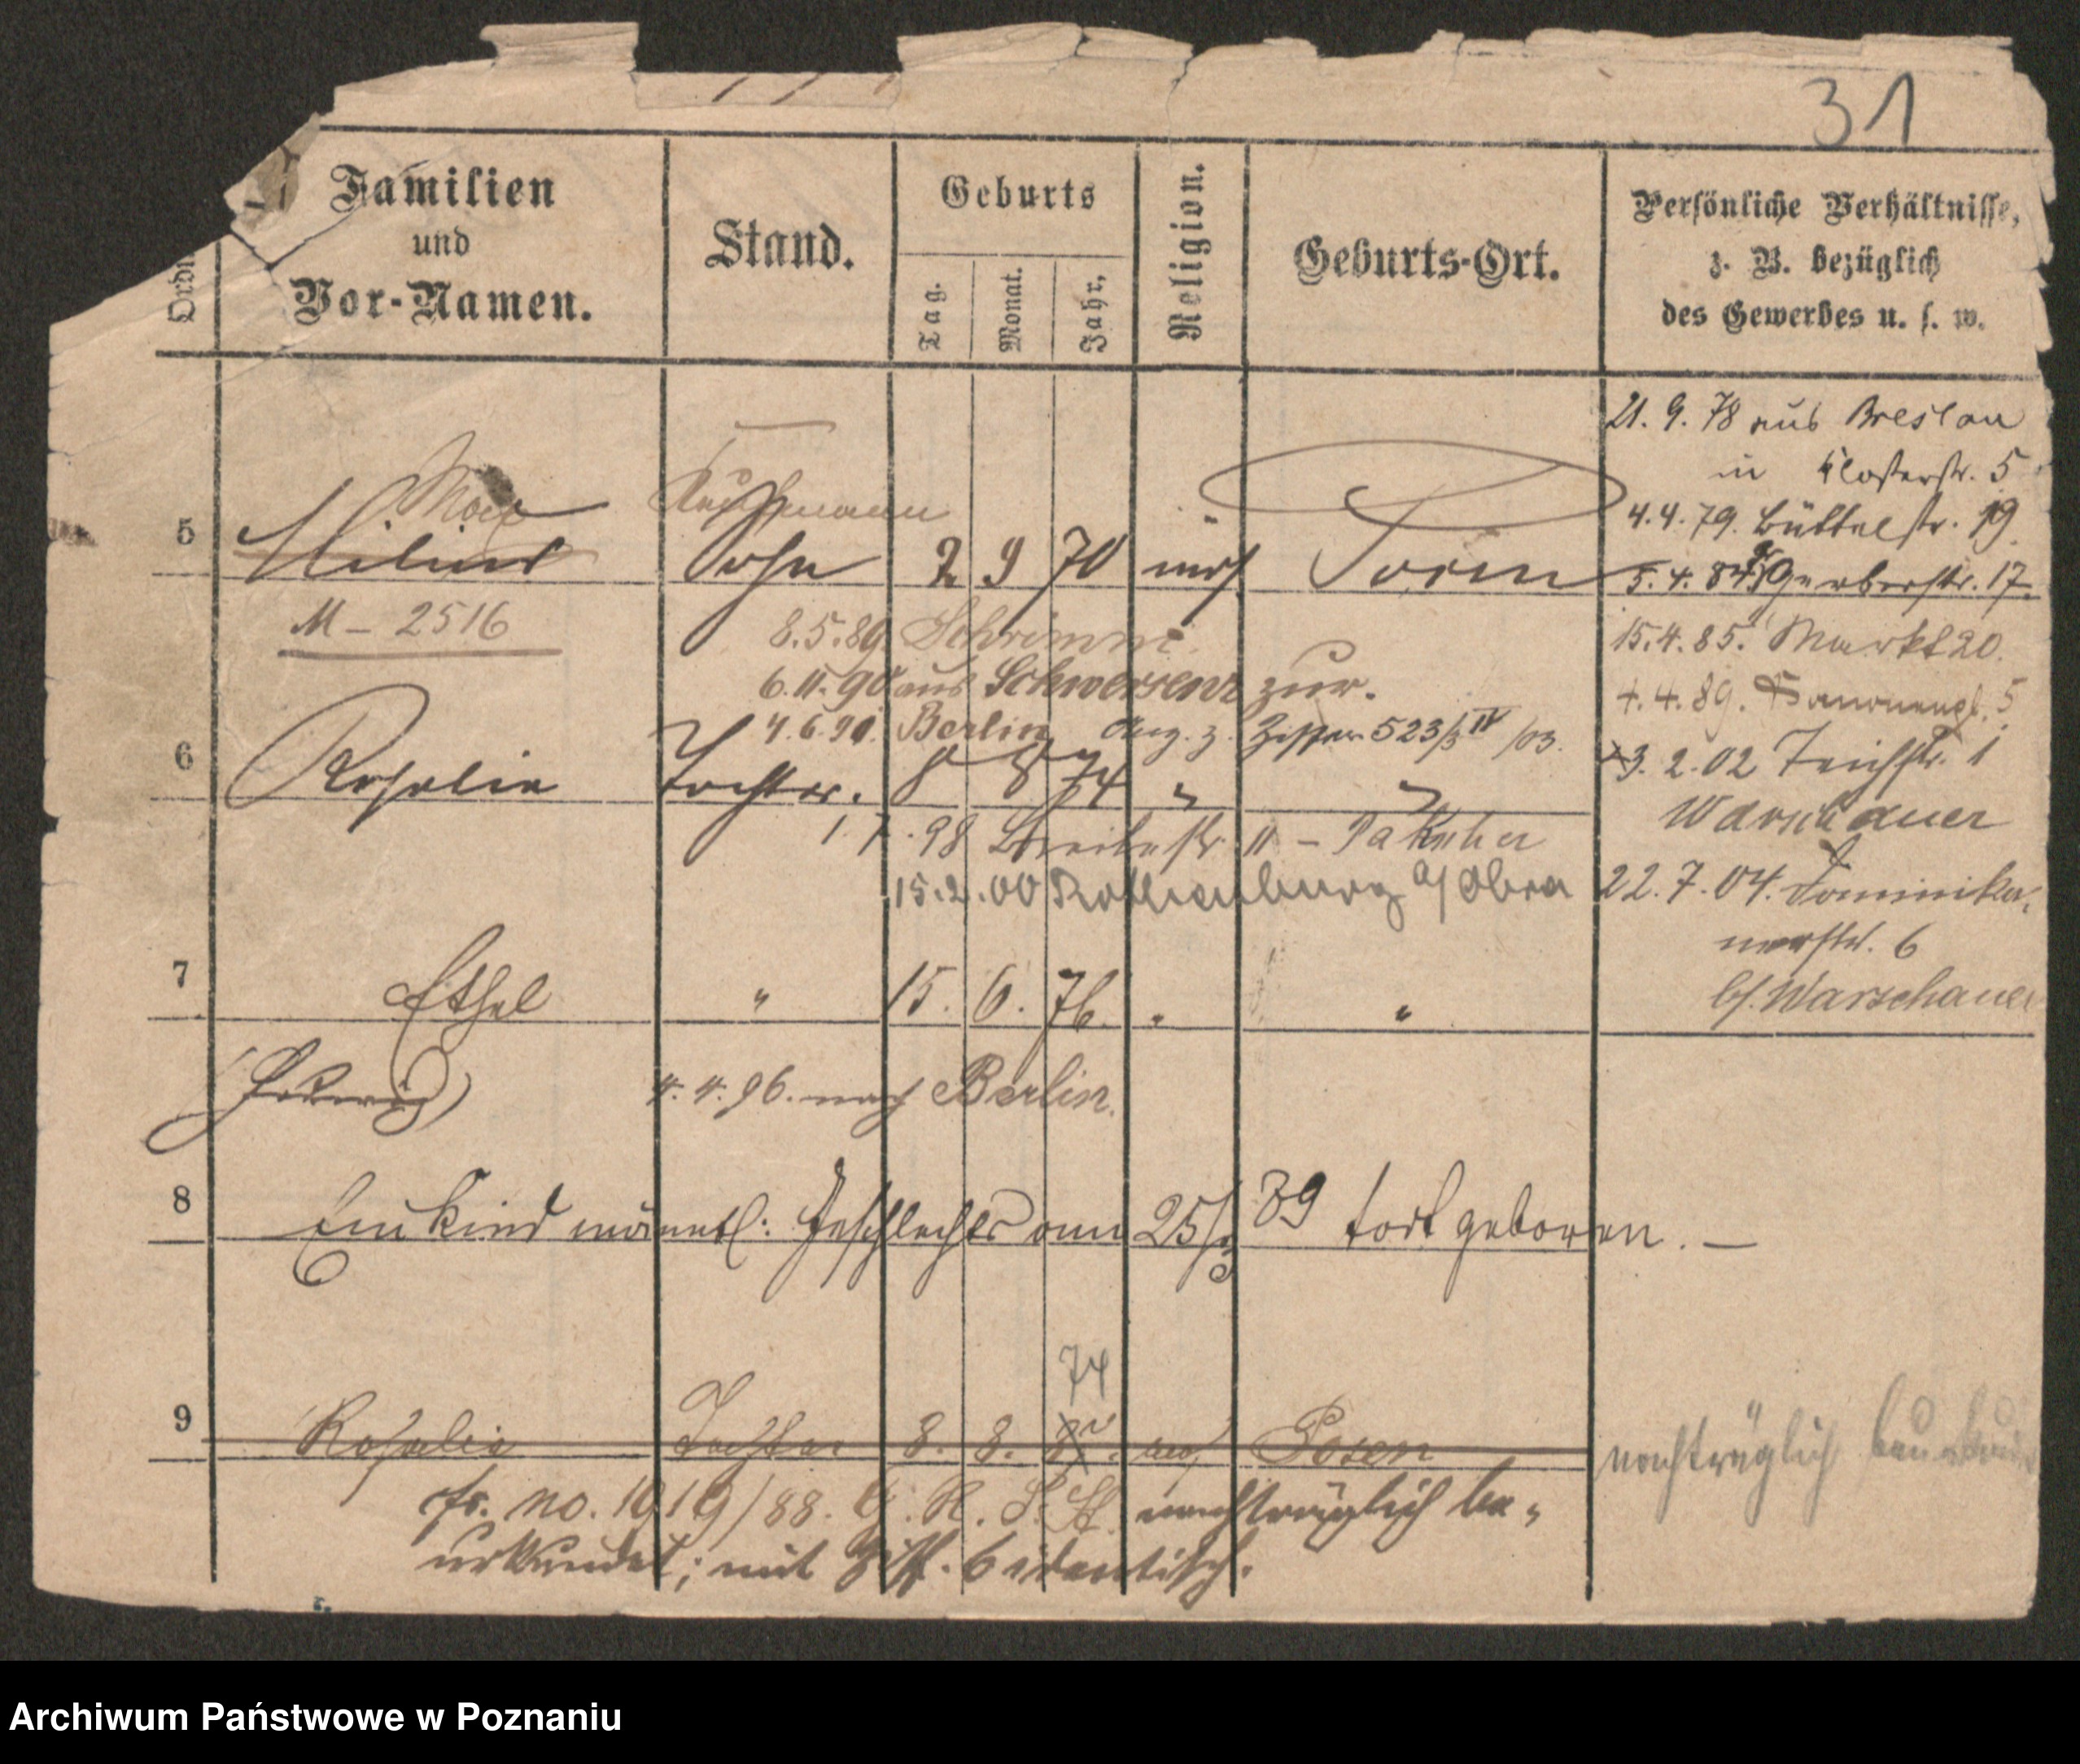 31
Familien
und
Vor-Namen.
Stand.
Geburts
Tag.
Monat.
Jahr.
Religion.
Geburts-Ort.
Persönliche Verhältnisse,
z. B. bezüglich
des Gewerbes u. s. w.
21. 9. 78 aus Breslau
in Klosterstr. 5
4. 4. 79. Büttelstr. 19
Max Kaufmann
5 Sohn 2 9 70 mos
5. 4. 84. Gerberstr. 17.
M - 2516
8. 5. 89. Schrimm.
15. 4. 85. Markt 20.
6. 11. 90 aus Schwersenz zur.
4. 4. 89. 5
4. 6. 91. Berlin Ang. z. Ziffer 523/3 IV /03.
6 Rosalie Tochter. 8 8 74 "  "
3. 2. 02 Teichstr. 1
Warschauer
1. 7. 98 Breitestr. 11 -
15. 2. 00 Rothenburg a/Obra
22. 7. 04. Dominika-
nerstr. 6
bf. Warschauer
7 Ethel " 15. 6. 76. " "
(Hedwig) 4. 4. 96. nach Berlin.
8 Ein Kind männl: Geschlechts am 25/3 89 tort geboren. —
74
9 Rosalie Tochter 8. 8. mos Posen nachträglich beurkundet
fr. No. 1019/88. G. R. S. St. nachträglich be-
urkundet; mit Ziff. 6 identisch.
Archiwum Państwowe w Poznaniu